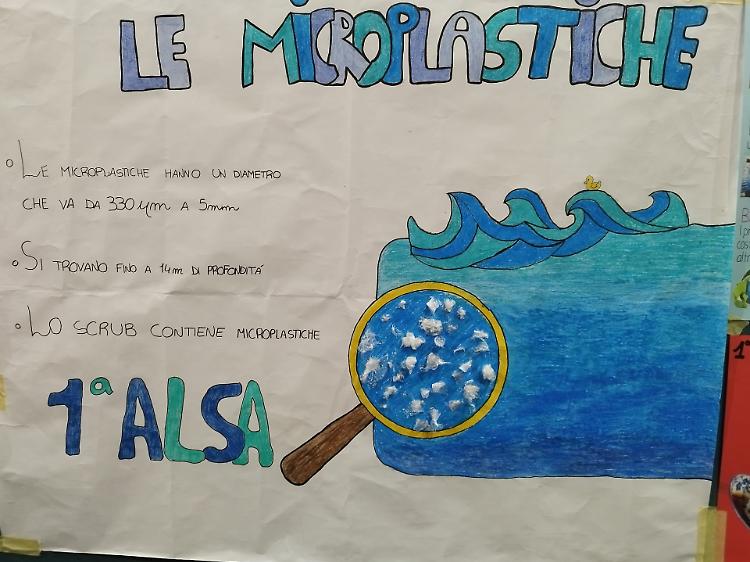 LE MICROPLASTICHE
LE MICROPLASTICHE HANNO UN DIAMETRO
CHE VA DA 330 μm A 5mm
SI TROVANO FINO A 14m DI PROFONDITÁ
LO SCRUB CONTIENE MICROPLASTICHE
1ª ALSA
1°